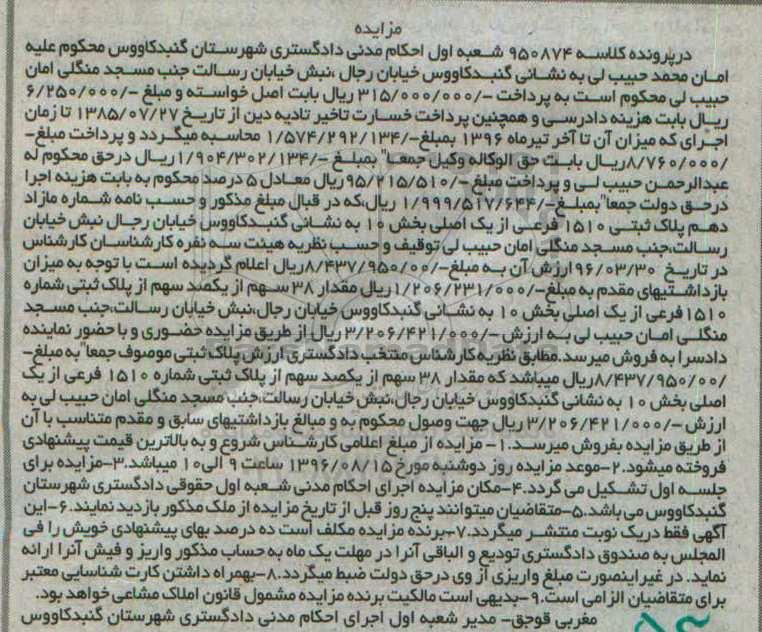 مزایده
درپرونده کلاسه ۹۵۰۸۷۴ شعبه اول احکام مدنی دادگستری شهرستان گنبدکاووس محکوم علیه
امان محمد حبیب لی به نشانی گنبدکاووس خیابان رجال ،نبش خیابان رسالت جنب مسجد منگلی امان
حبیب لی محکوم است به پرداخت -/۳۱۵/۰۰۰/۰۰۰ ریال بابت اصل خواسته و مبلغ -/۶/۲۵۰/۰۰۰
ریال بابت هزینه دادرسی و همچنین پرداخت خسارت تاخیر تادیه دین از تاریخ ۱۳۸۵/۰۷/۲۷ تا زمان
اجرای که میزان آن تا آخر تیرماه ۱۳۹۶ بمبلغ-/۱/۵۷۴/۲۹۲/۱۳۴ محاسبه میگردد و پرداخت مبلغ-
/۸/۷۶۰/۰۰۰ریال بابت حق الوکاله وکیل جمعا" بمبلغ -/۱/۹۰۴/۳۰۲/۱۳۴ریال درحق محکوم له
عبدالرحمن حبیب لی و پرداخت مبلغ-/۹۵/۲۱۵/۵۱۰ریال معادل ۵ درصد محکوم به بابت هزینه اجرا
درحق دولت جمعا"بمبلغ-/۱/۹۹۹/۵۱۷/۶۴۴ ریال،که در قبال مبلغ مذکور و حسب نامه شماره مازاد
دهم پلاک ثبتی ۱۵۱۰ فرعی از یک اصلی بخش ۱۰ به نشانی گنبدکاووس خیابان رجال نبش خیابان
رسالت،جنب مسجد منگلی امان حبیب لی توقیف و حسب نظریه هیئت سه نفره کارشناسان کارشناس
در تاریخ ۹۶/۰۳/۳۰ ارزش آن به مبلغ-/۸/۴۳۷/۹۵۰/۰۰ریال اعلام گردیده است با توجه به میزان
بازداشتیهای مقدم به مبلغ-/۱/۲۰۶/۲۳۱/۰۰۰ریال مقدار ۳۸ سهم از یکصد سهم از پلاک ثبتی شماره
۱۵۱۰فرعی از یک اصلی بخش ۱۰ به نشانی گنبدکاووس خیابان رجال،نبش خیابان رسالت،جنب مسجد
منگلی امان حبیب لی به ارزش -/۳/۲۰۶/۴۲۱/۰۰۰ریال از طریق مزایده حضوری و با حضور نماینده
دادسرا به فروش میرسد.مطابق نظریه کارشناس منتخب دادگستری ارزش پلاک ثبتی موصوف جمعا" به مبلغ-
/۸/۴۳۷/۹۵۰/۰۰ریال میباشد که مقدار ۳۸ سهم از یکصد سهم از پلاک ثبتی شماره ۱۵۱۰ فرعی از یک
اصلی بخش ۱۰ به نشانی گنبدکاووس خیابان رجال،نبش خیابان رسالت،جنب مسجد منگلی امان حبیب لی به
ارزش -/۳/۲۰۶/۴۲۱/۰۰۰ ریال جهت وصول محکوم به و مبالغ بازداشتیهای سابق و مقدم متناسب با آن
از طریق مزایده بفروش میرسد.۱- مزایده از مبلغ اعلامی کارشناس شروع و به بالاترین قیمت پیشنهادی
فروخته میشود.۲-موعد مزایده روز دوشنبه مورخ ۱۳۹۶/۰۸/۱۵ ساعت ۹ الی۱۰ میباشد.۳-مزایده برای
جلسه اول تشکیل می گردد.۴-مکان مزایده اجرای احکام مدنی شعبه اول حقوقی دادگستری شهرستان
گنبدکاووس می باشد.۵-متقاضیان میتوانند پنج روز قبل از تاریخ مزایده از ملک مذکور بازدید نمایند.۶-این
آگهی فقط دریک نوبت منتشر میگردد.۷-برنده مزایده مکلف است ده درصد بهای پیشنهادی خویش را فی
المجلس به صندوق دادگستری تودیع و الباقی آنرا در مهلت یک ماه به حساب مذکور واریز و فیش آنرا ارائه
نماید. در غیراینصورت مبلغ واریزی از وی درحق دولت ضبط میگردد.۸-بهمراه داشتن کارت شناسایی معتبر
برای متقاضیان الزامی است.۹-بدیهی است مالکیت برنده مزایده مشمول قانون املاک مشاعی خواهد بود.
مغربی قوجق- مدیر شعبه اول اجرای احکام مدنی دادگستری شهرستان گنبدکاووس